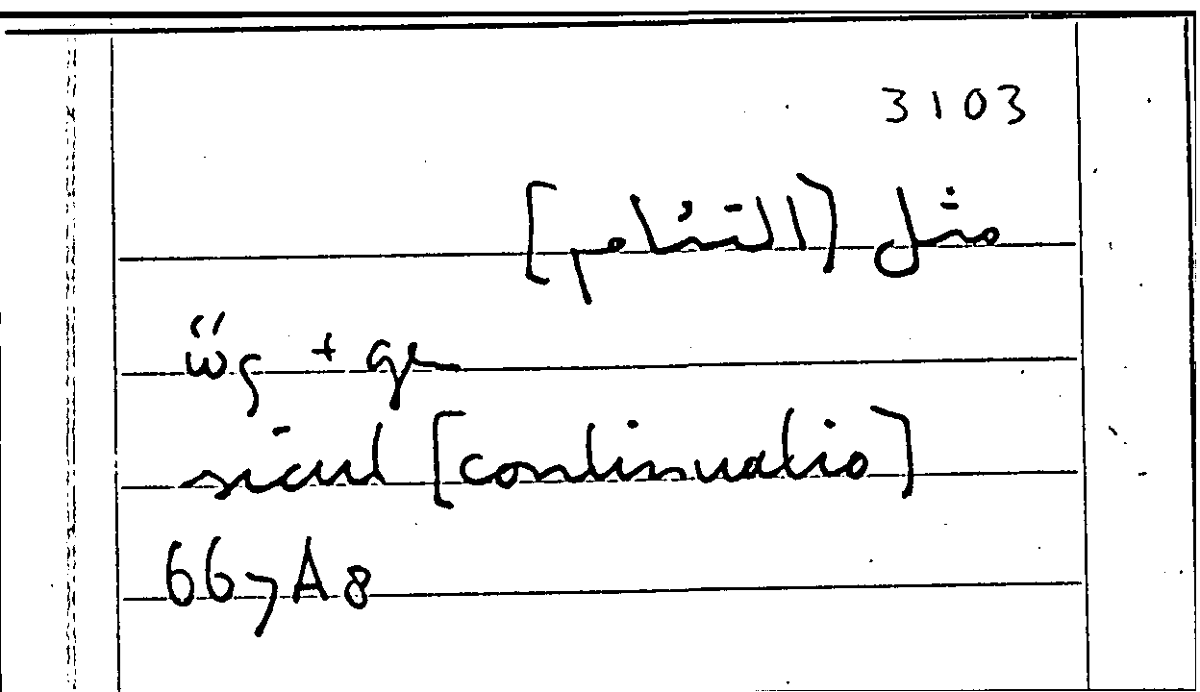 3103
مثل [التئام]
ὥς + gen
sicut [continuatio]
667A8